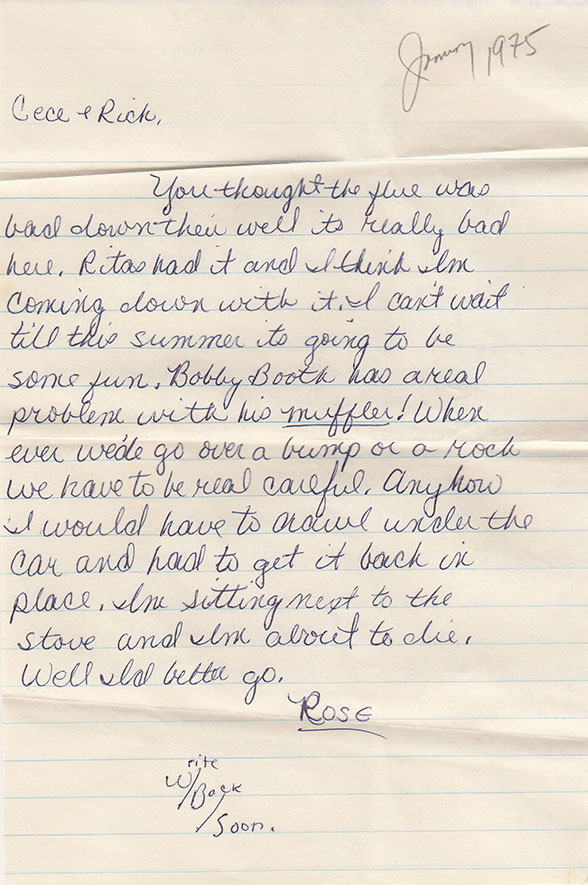 January 1975
Cece & Rick,
You thought the flue was
bad down their well its really bad
here. Ritas had it and I think Im
coming down with it. I can't wait
till this summer its going to be
some fun. Bobby Booth has a real
problem with his muffler! When
ever we'de go over a bump or a rock
we have to be real careful. Anyhow
I would have to crawl under the
car and had to get it back in
place. Im sitting next to the
stove and Im about to die.
Well I'd better go.
Rose
W/rite
Back/
Soon.